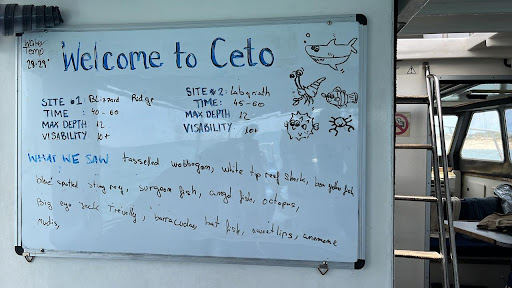 Water
Temp
28-29°
Welcome to Ceto
SITE #1: Blizzard Ridge
TIME : 40-60
MAX DEPTH 12
VISABILITY 10+
SITE #2: Labyrinth
TIME: 45-60
MAX DEPTH 12
VISABILITY 10+
WHAT WE SAW tasselled wobbegon, white tip reef shark, lion fish
blue spotted sting ray, surgeon fish, angel fish, octopus,
Big eye Jack Trevelly, barracudas, bat fish, sweetlips, anemome
Nudis,